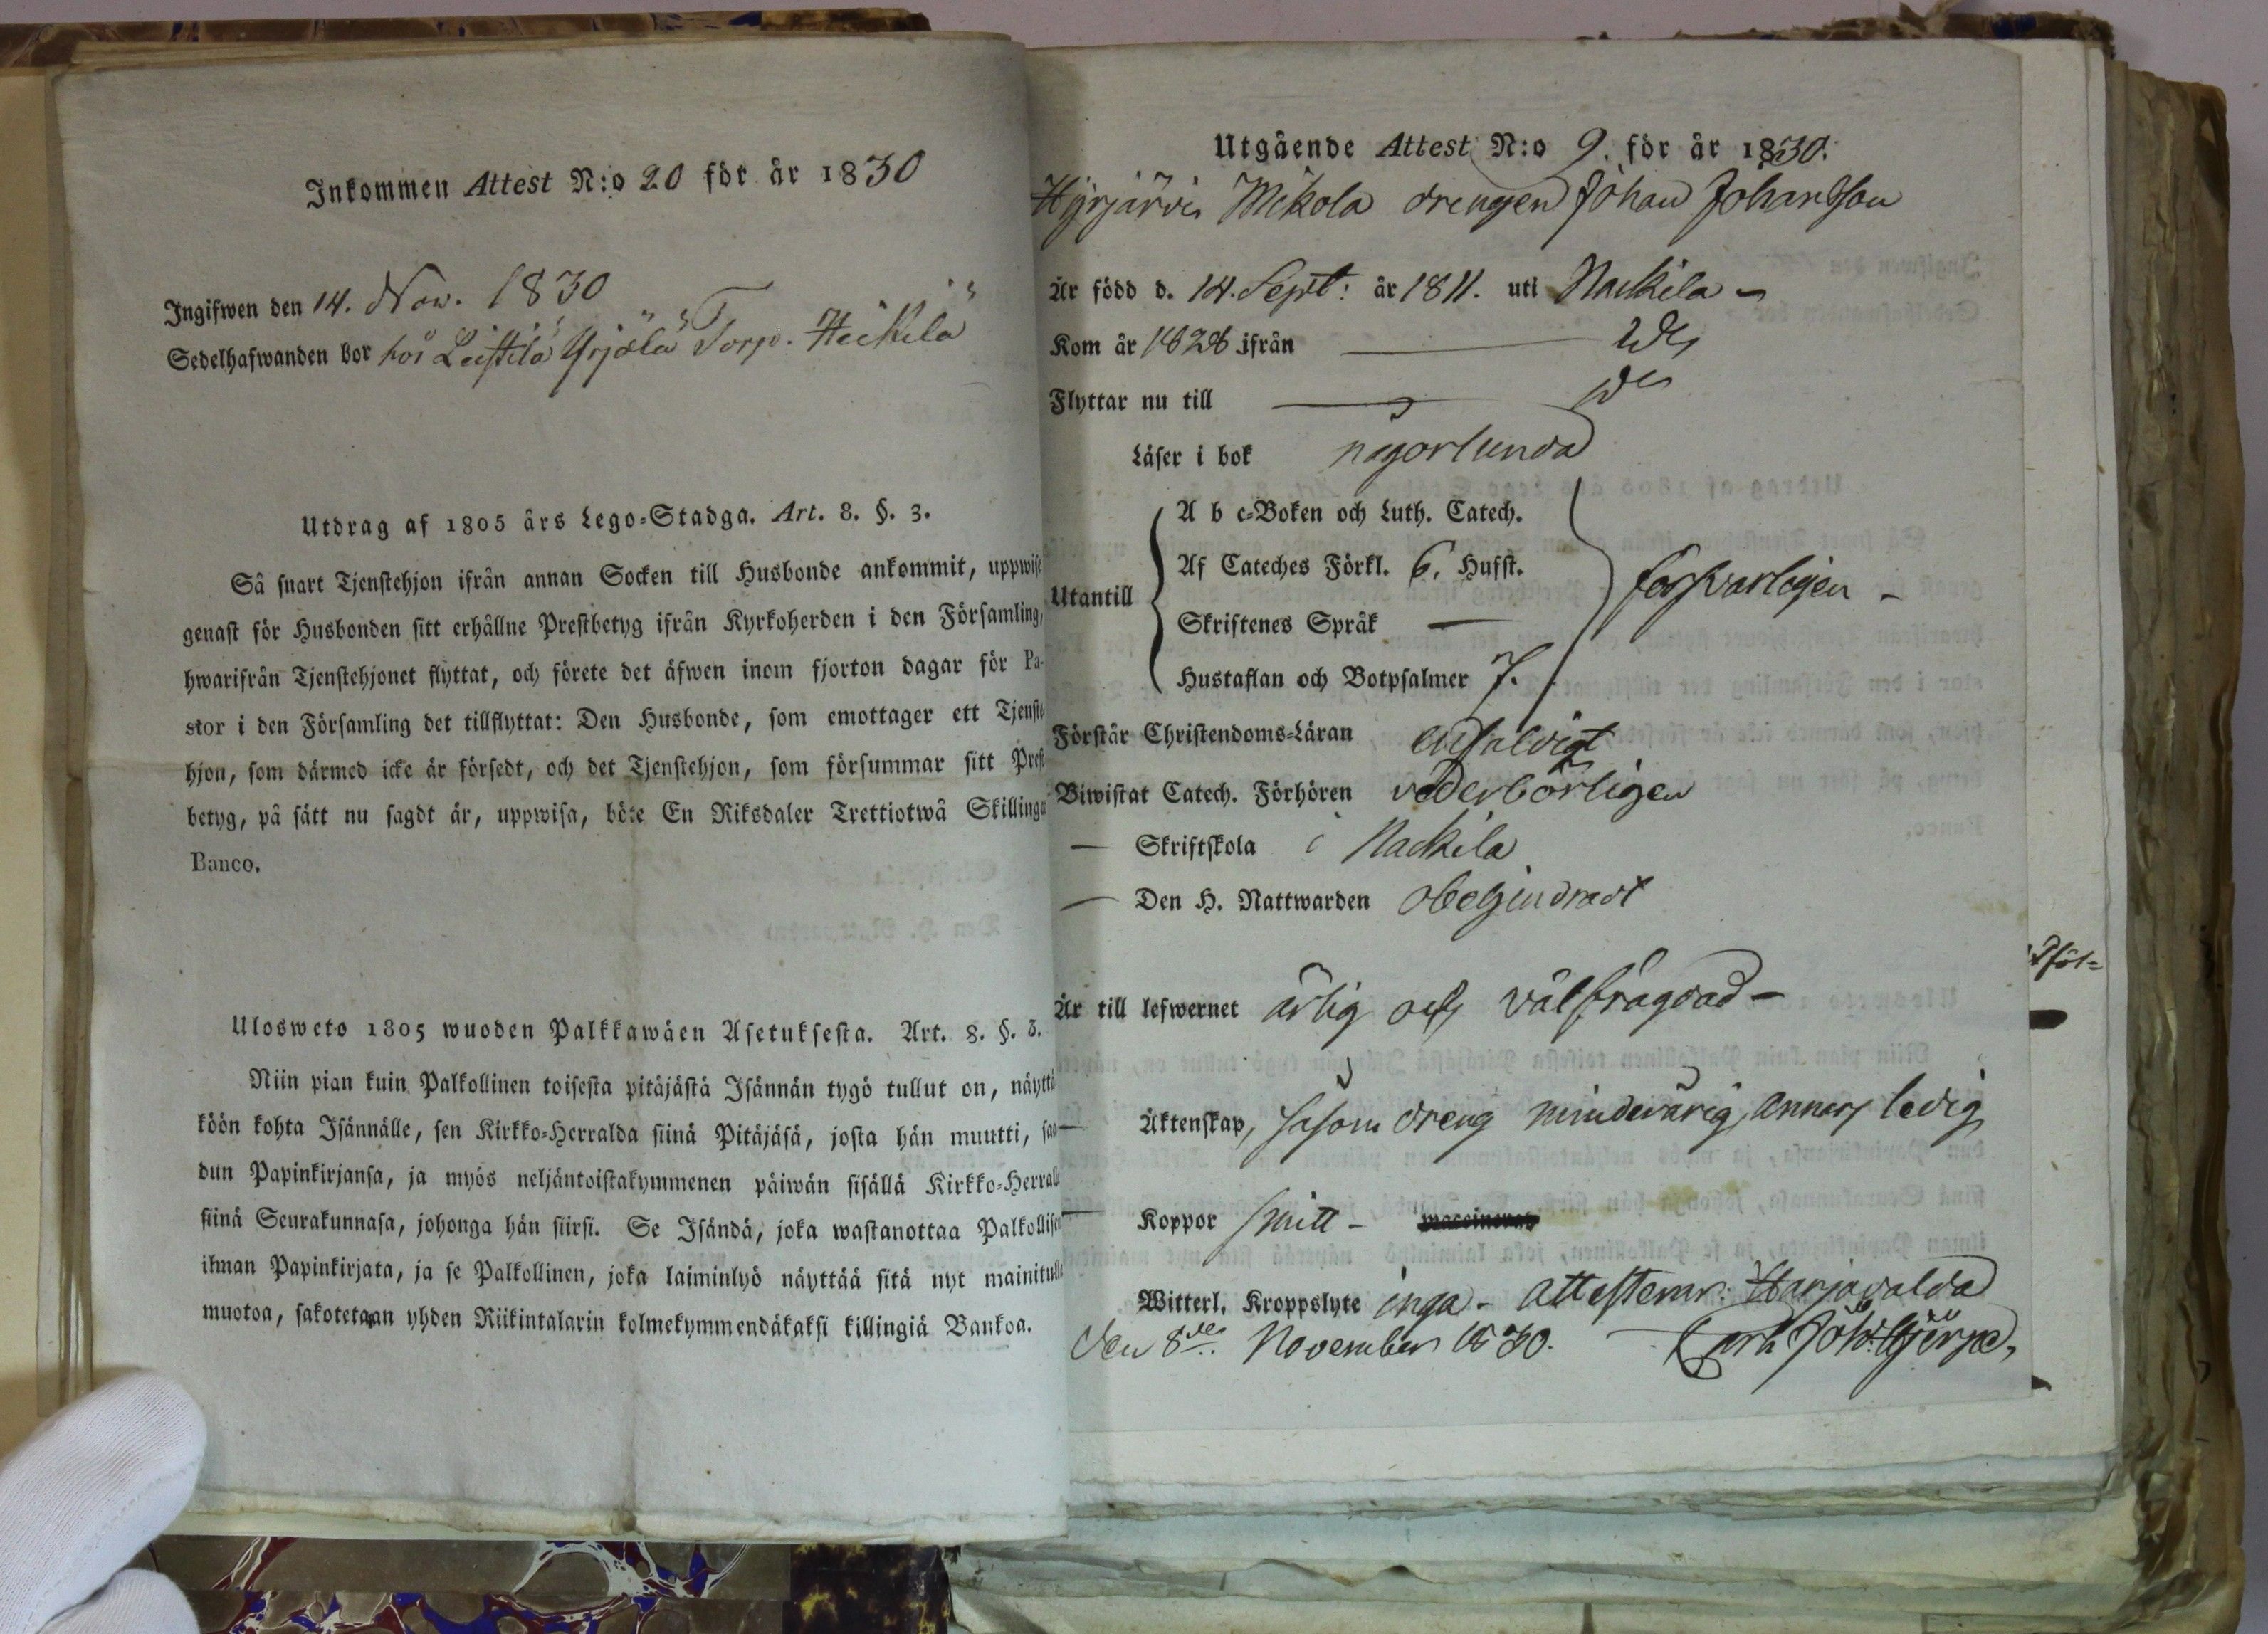 Inkommen Attest N:o 20 för år 1830
Ingifwen den 14. Nov. 1830
Sedelhafwanden bor hos Leistilä Yrjölä Torp. Heikilä
Utdrag af 1805 års Lego-Stadga. Art. 8. §. 3.
Så snart Tjenstehjon ifrån annan Socken till Husbonde ankommit, uppwise
genast för Husbonden sitt erhållne Prestbetyg ifrån Kyrkoherden i den Församling,
hwarifrån Tjenstehjonet flyttat, och förete det äfwen inom fjorton dagar för Pa-
stor i den Församling det tillflyttat: Den Husbonde, som emottager ett Tjenste-
hjon, som därmed icke är försedt, och det Tjenstehjon, som försummar sitt Prest-
betyg, på sätt nu sagdt är, uppwisa, böte En Riksdaler Trettiotwå Skillingar
Banco.
Ulosweto 1805 wuoden Palkkawäen Asetuksesta. Art. 8. §. 3.
Niin pian kuin Palkollinen toisesta pitäjästä Isännän tygö tullut on, näyttä-
köön kohta Isännälle, sen Kirkko-Herralda siinä Pitäjäsä, josta hän muutti, saa-
dun Papinkirjansa, ja myös neljäntoistakymmenen päiwän sisällä Kirkko-Herralle
siinä Seurakunnasa, johonga hän siirsi. Se Isändä, joka wastanottaa Palkollisen
ilman Papinkirjata, ja se Palkollinen, joka laiminlyö näyttää sitä nyt mainitulla
muotoa, sakotetaan yhden Riikintalarin kolmekymmendäkaksi killingiä Bankoa.
Utgående Attest N:o 9. för år 1830.
Hyrjärvi Mikola drengen Johan Johansson
Är född d. 14. Sept: år 1811. uti Nackila
Kom år 1828 ifrån —
Flyttar nu till —
Läser i bok någorlunda
A b c-Boken och Luth. Catech.
Af Cateches Förkl. 6. Hufst.
Utantill försvarligen
Skriftenes Språk —
Hustaflan och Botpsalmer 7.
Förstår Christendoms-Läran enfaldigt
Biwistat Catech. Förhören vederbörligen
— Skriftskola i Nackila
— Den H. Nattwarden obehindradt
Är till lefwernet ärlig och välfrägdad —
— Äktenskap, såsom dreng minderårig, annars ledig
— Koppor haft —
Witterl. Kroppslyte inga - attesterar. Harjavalda
den 8de November 1830. Carl Joh: